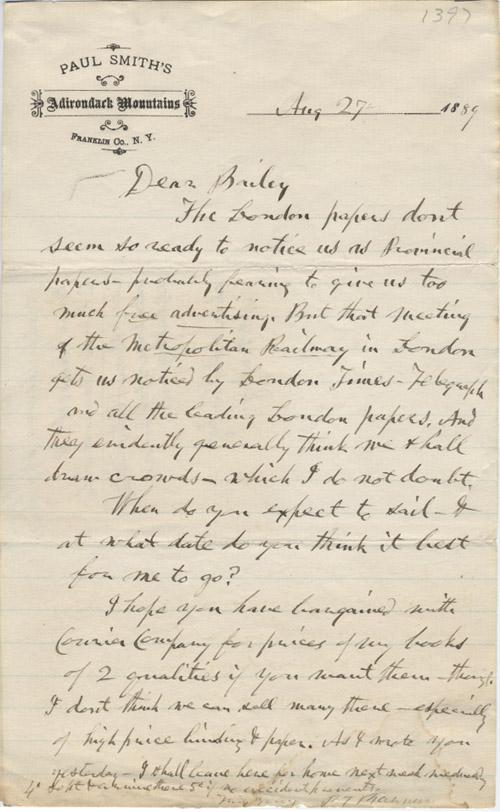 1397
PAUL SMITH'S
Adirondack Mountains
FRANKLIN CO., N. Y.
Aug 27 1889
Dear Bailey
The London papers dont
seem so ready to notice us as Provincial
papers - probably fearing to give us too
much free advertising. But that meeting
of the Metropolitan Railway in London
gets us noticed by London Times - Telegraph
and all the leading London papers. And
they evidently generally think we shall
draw crowds - which I do not doubt.
When do you expect to sail - &
at what date do you think it best
for me to go?
I hope you have bargained with
Courier Company for prices of my books
of 2 qualities if you want them - though
I dont think we can sell many there - especially
of high price binding & paper. As I wrote you
yesterday - I shall leave here for home next week Wednesday
4th Sept & arrive there 5th if no accident prevents.
P. T. Barnum